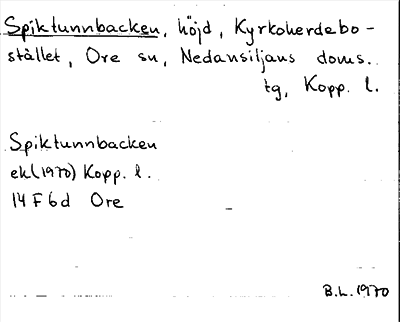 Spiktunnbacken, höjd, Kyrkoherdebo-
stället, Ore sn, Nedansiljans doms.
tg, Kopp. l.
Spiktunnbacken
ek(1970) Kopp. l.
14 F 6 d Ore
B.L. 1970